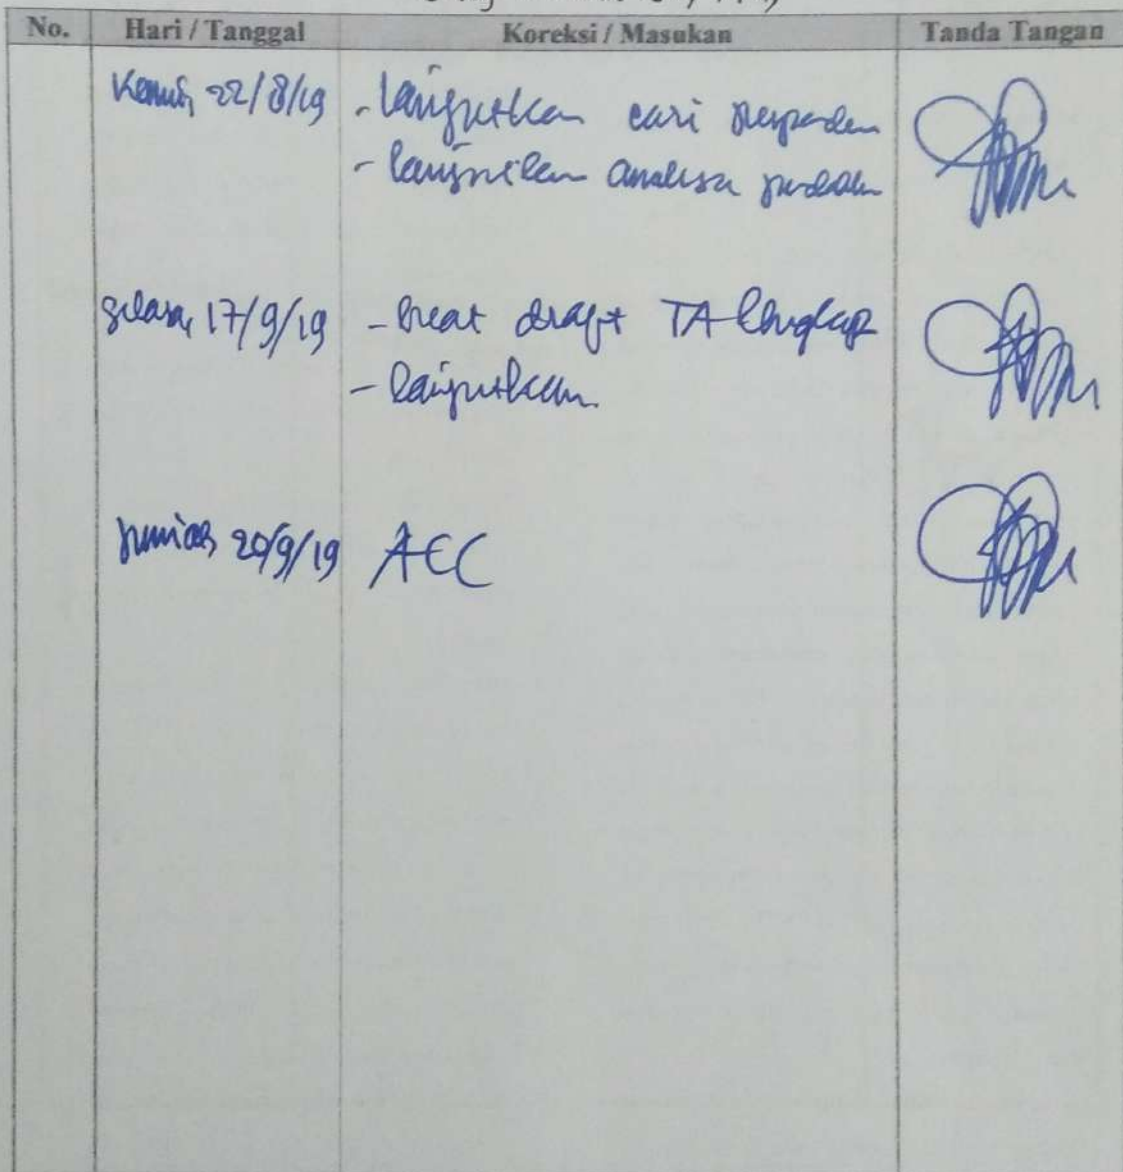 No. Hari / Tanggal Koreksi / Masukan Tanda Tangan
Kamis, 22/8/19 - lanjutkan cari responden
- lanjutkan analisa
Selasa, 17/9/19 - buat draft TA lengkap
- lanjutkan
Jumat, 20/9/19 ACC